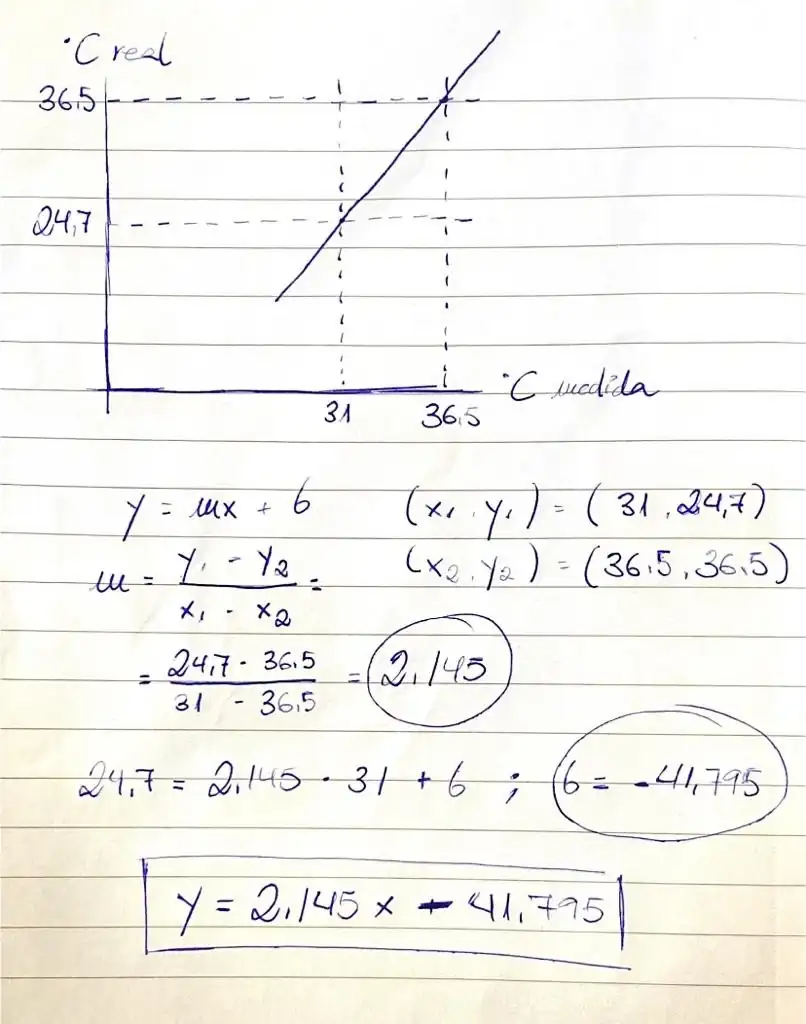 °C real
36.5
24,7
°C medida
31 36.5
y = mx + b (x₁, y₁) = (31, 24,7)
m = y₁ - y₂ / x₁ - x₂ = (x₂, y₂) = (36.5, 36.5)
= 24,7 - 36.5 / 31 - 36.5 = 2.145
24.7 = 2.145 · 31 + b ; b = -41,795
y = 2.145 x - 41.795